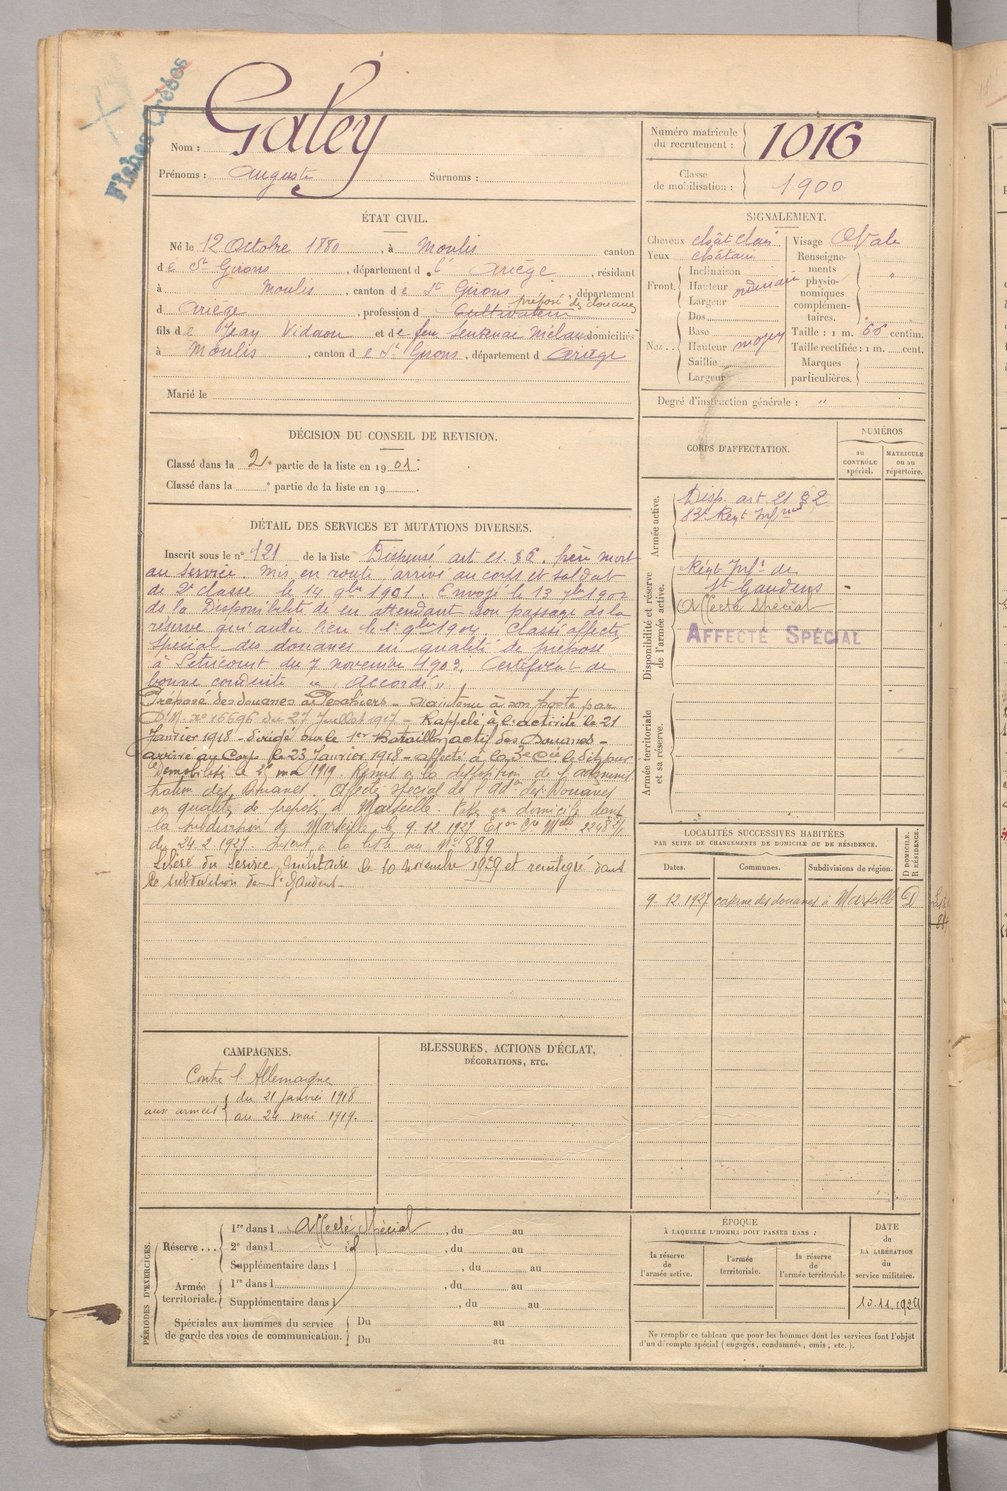 Fiches Créées
Galey
Nom :
Prénoms : Auguste Surnoms :
Numéro matricule du recrutement : 1016
Classe de mobilisation : 1900
ÉTAT CIVIL.
Né le 12 Octobre 1880, à Moulis canton
de St Girons, département de l' Ariège, résidant
à Moulis, canton de St Girons, département
préposé des douanes
d Ariège, profession d Cultivateur
fils de Jean Vidaou et de feu Sentenac domiciliés
à Moulis, canton de St Girons, département d Ariège
Marié le
SIGNALEMENT.
Cheveux chât clair Visage Ovale
Yeux châtain
Front. Inclinaison Hauteur Largeur ordinaire
Renseignements physionomiques complémentaires. "
Nez... Dos Base Hauteur Saillie Largeur moyen
Taille : 1 m. 66 centim.
Taille rectifiée : 1 m. cent.
Marques particulières.
Degré d'instruction générale : "
DÉCISION DU CONSEIL DE REVISION.
Classé dans la 2e partie de la liste en 1901.
Classé dans la e partie de la liste en 19 .
CORPS D'AFFECTATION.
NUMÉROS
au CONTRÔLE spécial.
MATRICULE ou au répertoire.
Armée active.
Disp. art 21 § 2
83e Régt Infrie
Disponibilité et réserve de l'armée active.
Régt Infie de
St Gaudens
Affecté Spécial
AFFECTÉ SPÉCIAL
Armée territoriale et sa réserve.
DÉTAIL DES SERVICES ET MUTATIONS DIVERSES.
Inscrit sous le n° 121 de la liste Dispensé art 21 § 6 frère mort
au service. Mis en route arrivé au corps et soldat
de 2e classe le 14 9bre 1901. Envoyé le 13 7bre 1902
ds la Disponibilité de en attendant son passage ds la
réserve qui aura lieu le 1er 9bre 1904. Classé affecté
spécial des douanes en qualité de préposé
à du 7 novembre 1903. Certificat de
bonne conduite " Accordé "
Préposé des douanes à maintenu à son poste par
D.M. no 15696 du 27 Juillet 1917 - Rappelé à l'activité le 21
Janvier 1918 - dirigé sur le 1er Bataillon actif des Douanes -
arrivé au Corps le 23 Janvier 1918 - affecté à la 3e Cie le dit jour
Démobilisé le 25 mai 1919. Remis à la disposition de l'adminis
tration des Douanes. Affecté spécial de l'Ad° des Douanes
en qualité de préposé à Marseille. Passe en domicile dans
la subdivision de Marseille le 9.12.1927
du 24.2.1927. Inscrit à la liste au N° 889
Libéré du Service Militaire le 10 novembre 1929 et réintégré dans
la subdivision de St Gaudens -
LOCALITÉS SUCCESSIVES HABITÉES
PAR SUITE DE CHANGEMENTS DE DOMICILE OU DE RÉSIDENCE.
Dates. Communes. Subdivisions de région. D DOMICILE. R RÉSIDENCE.
9.12.1927 caserne des douanes à Marseille D
CAMPAGNES.
Contre l'Allemagne
aux armées du 21 janvier 1918
au 24 mai 1919.
BLESSURES, ACTIONS D'ÉCLAT,
DÉCORATIONS, ETC.
PÉRIODES D'EXERCICES.
Réserve...
1re dans l Affecté Spécial, du au
2e dans l id, du au
Supplémentaire dans l , du au
Armée territoriale.
1re dans l , du au
Supplémentaire dans l , du au
Spéciales aux hommes du service de garde des voies de communication.
Du au
Du au
ÉPOQUE
À LAQUELLE L'HOMME DOIT PASSER DANS :
la réserve de l'armée active.
l'armée territoriale.
la réserve de l'armée territoriale
DATE de LA LIBÉRATION du service militaire.
10.11.1929
Ne remplir ce tableau que pour les hommes dont les services font l'objet
d'un décompte spécial (engagés, condamnés, omis, etc.).